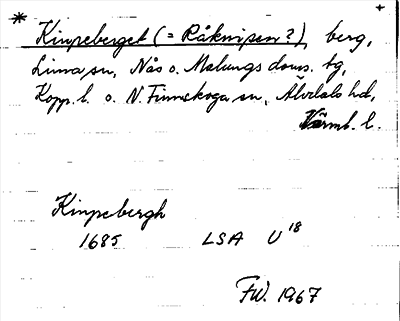 * Kinpeberget (= Råknipen?), berg, +
Lima sn, Nås o. Malungs doms. tg,
Kopp. l. o. N. Finnskoga sn, Älvdals hd,
Värml. l.
Kinpebergh
1685 LSA U 18
FW. 1967